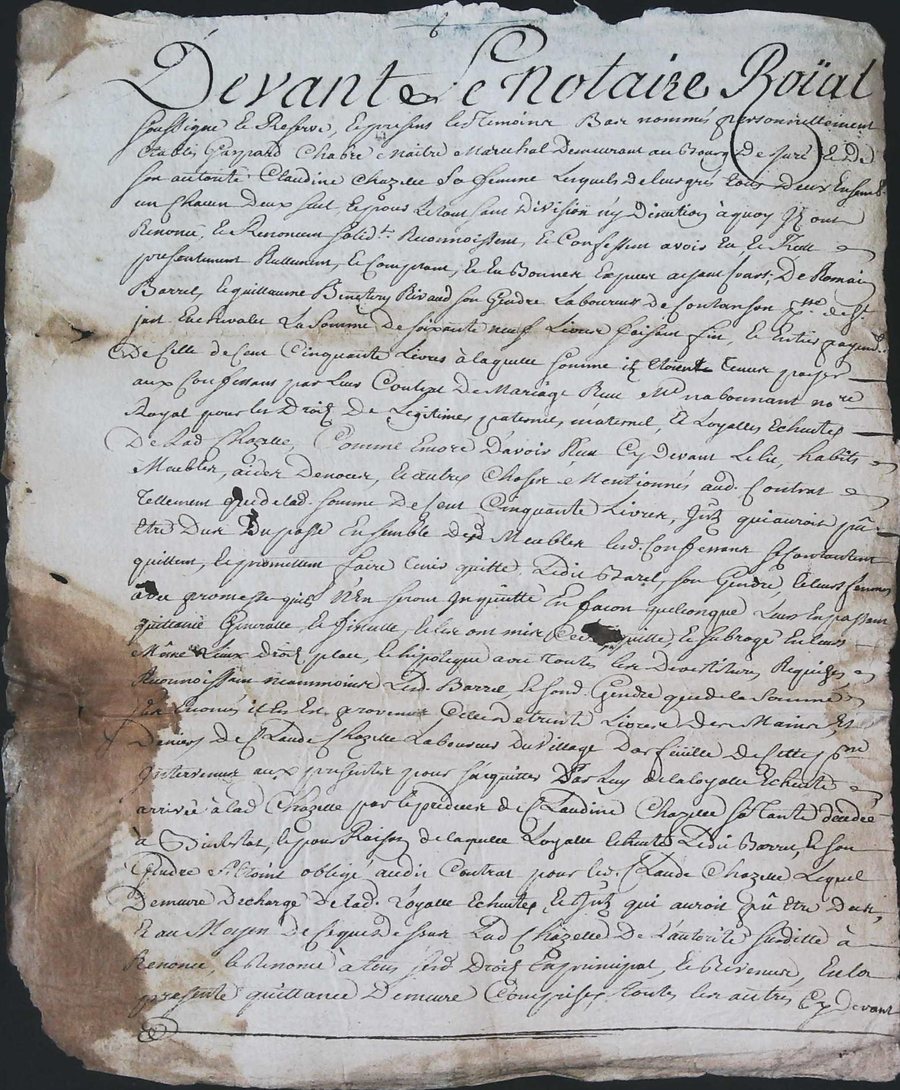 6
Devant Le notaire Roïal
soussigne et Reservé, et presens les Temoins Bas nommés personnellement
Etablis Gaspard Chabre Maitre Marechal Demeurant au Bourg De Juré Et De
son autorité Claudine Chazelle Sa femme Lesquels de leur gré tous Deux Ensemb
un Chacun Deux seul, et pour Le tout sans Division n'y Dicution à quoy Ils ont
Renoncé, et Renoncent solidt. Reconnoissent, et Confessent avoir Eu et Receu
presentement Reellement, et Comptant, et En Bonnes Especes ayant Cours, De Romain
Barrel, et guillaume Rivaud son Gendre Laboureurs de
La Somme De soixante neuf Livres faisant fin, et Entier payemt.
De Celle de Cent Cinquante Livres à laquelle somme ils Etoient Tenus payer
aux Confessans par Leur Contrat De Mariage Reçu Me nabonnant nore
Royal pour les Droits De Legitimes paternel, maternel, et Loyalles Echuttes
De Lad Chazelle, Comme Encore D'avoir Reçu Cy Devant Le Lit, habits
Meubles, aides De noces, et autres Choses Mentionnés aud. Contrat
Tellement que de lad. somme De Cent Cinquante Livres, Jnts qui auroit pû
Etre Dus Du passé Ensemble Desd Meubles Lesd. Confessans se Contentent
quittent, et promettent faire Tenir quitte Ledit Barrel, son Gendre, et leurs femmes
avec promesse qu'ils N'En seront Inquiétté En facon quelconque Leurs En passant
quittance Generalle, et finalle, et les ont mis, et subrogé En leurs
Même Lieux Droits place, et hipoteque avec Toutes les Devestitures Requises
Reconnoissans neammoins Led. Barrel, et sond. Gendre que de la Somme
Il En Est provenus Celle de trente Livres des Mains Et
Deniers De Claude Chazelle Laboureur Du Village Darfeuille de Cette psse
Intervenus aux presentes pour s'acquitter De la loyalle Echutte
arrivée à lad Chazelle par le predeces de Claudine Chazelle Sa Tante decedée
à, et pour Raison de laquelle Loyalle Echutte Ledit Barrel, et son
Gendre s'etoient obligé audit Contrat pour led. Claude Chazelle Lequel
Demeure Decharge De lad. Loyalle Echutte, et Jnts qui auroit pû être Dus,
Et au Moyen De Ce que Dessus Lad Chazelle De L'autorité susditte à
Renoncé, et Renonce à tous sesd Droits En principal, et Revenus, En la
presente quittance Demeure Comprises, toutes les autres Cy Devant